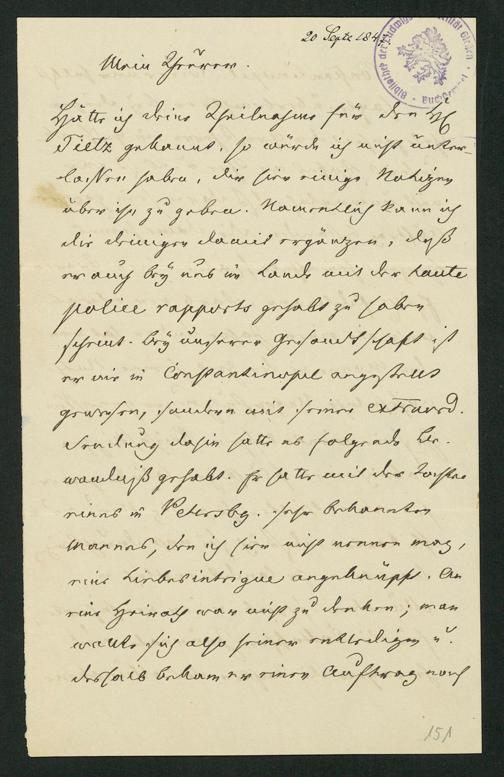 20 Septr 184
Mein Theurer.
Hätte ich deine Theilnahme für den H
Tietz gekannt, so würde ich nicht unter-
lassen haben, dir hier einige Notizen
über ihn zu geben. Namentlich kann ich
die deinigen damit ergänzen, daß
er auch bey uns im Lande mit der haute
police rapports gehabt zu haben
scheint. Bey unserer Gesandtschaft ist
er nie in Constantinopel angestellt
gewesen, sondern mit seiner extraord.
Sendung dahin hatte es folgende Be-
wandniß gehabt. Er hatte mit der Tochter
eines in Petersbg. sehr bekannten
Mannes, den ich hier nicht nennen mag,
eine Liebesintrigue angeknüpft. An
eine Heirath war nicht zu denken; man
wollte sich also seiner entledigen u.
deshalb bekam er einen Auftrag nach
151